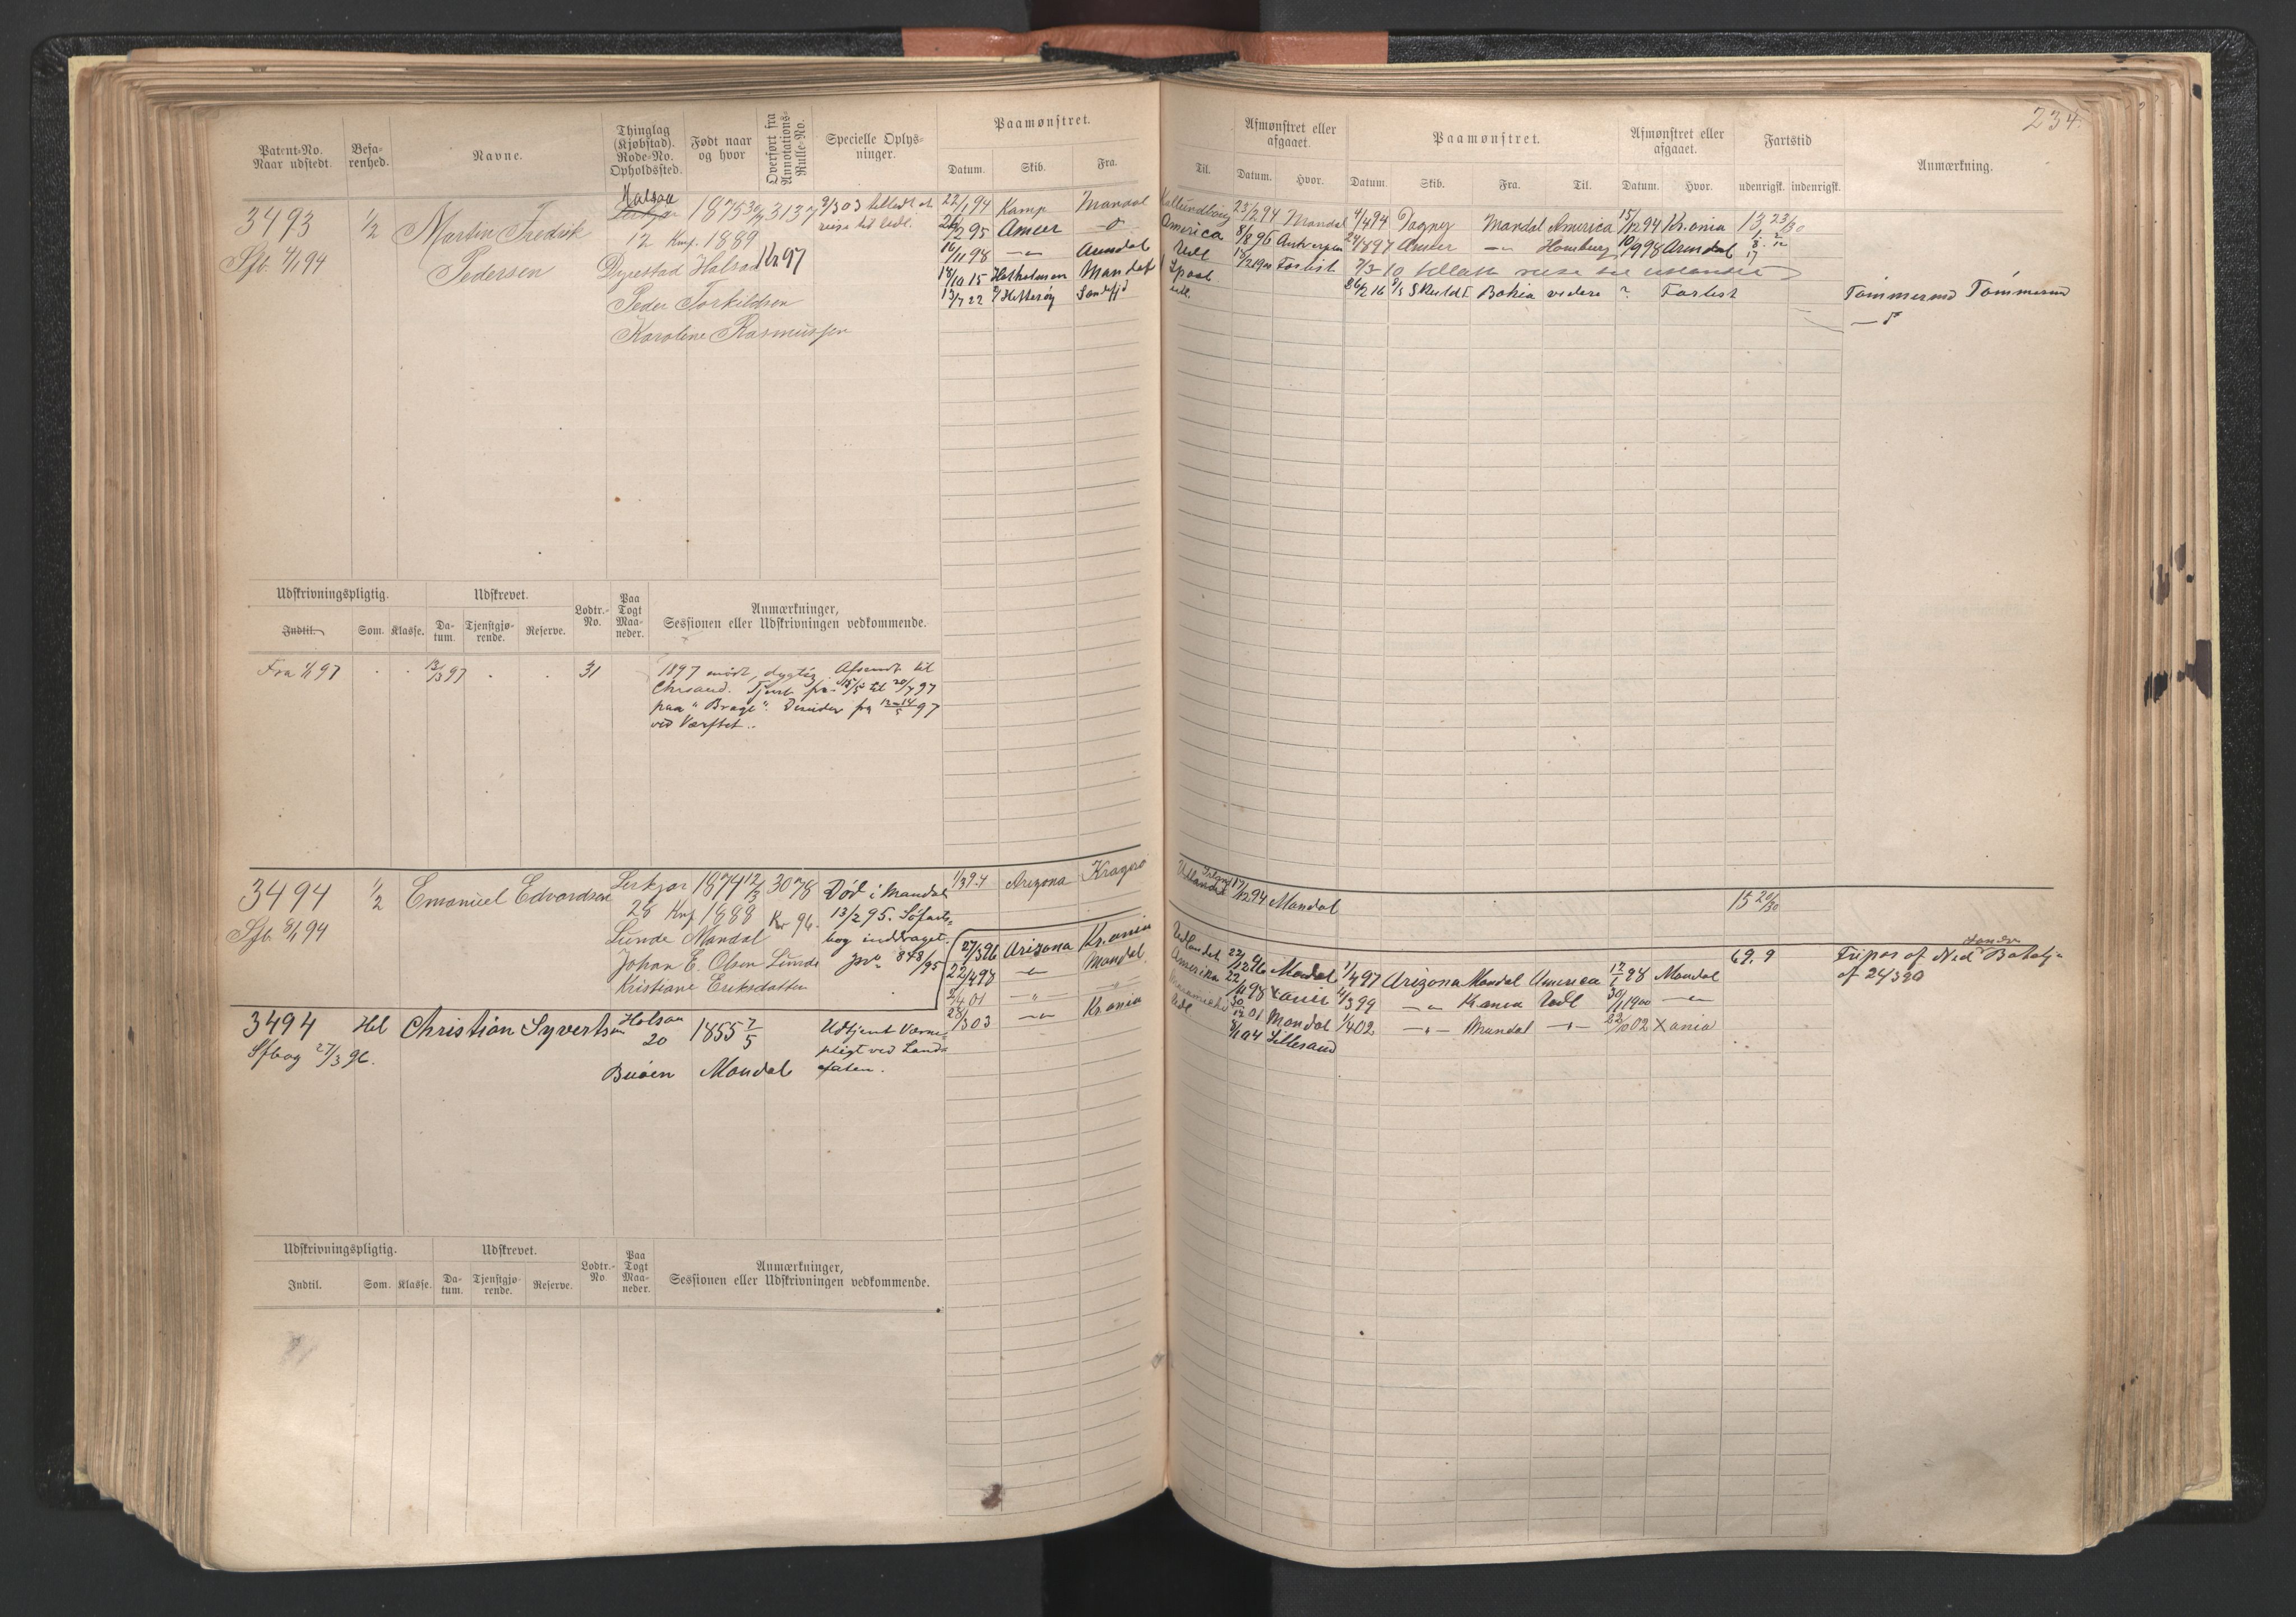 234.
Patent-No. Naar udstedt.
Befarenhed.
Navne.
Thinglag (Kjøbstad). Rode-No. Opholdssted.
Født naar og hvor
Overført fra Annotations-Rulle-No.
Specielle Oplysninger.
Paamønstret.
Datum. Skib. Fra. Til.
Afmønstret eller afgaaet.
Datum. Hvor.
Paamønstret.
Datum. Skib. Fra. Til.
Afmønstret eller afgaaet.
Datum. Hvor.
Fartstid
udenrigsk. indenrigsk.
Anmærkning.
3493
Sfb. 4/1 94
1/2
Martin Fredrik
Pedersen
Halsaa
12 Kmp. 1889
Dyrestad Halsaa
Peder Torkildsen
Karoline Rasmussen
1875 30/3
3137
Kr 97
22/1 94 Kamp Mandal Kallundborg 23/2 94 Mandal
4/4 94 Dagny Mandal America 15/12 94 Kr.ania
Ameer America 8/8 96 Antwerpen
24/8 97 Ameer Homburg 10/9 98 Arendal
16/11 98 Arendal Udl 18/2 1900 Forlist
18/10 15 Hatholmen Mandal
26/2 16 Bahia videre ? Forlist
13/7 22 Sandefjd udl.
Tømmermd Tømmermd
Udskrivningspligtig.
Udskrevet.
Lodtr.-No.
Paa Togt Maaneder.
Anmærkninger, Sessionen eller Udskrivningen vedkommende.
Indtil. Som. Klasse. Datum. Tjenstgjørende. Reserve.
Fra 1/1 97
13/3 97
31
1897 mødt, dygtig. Afsendt til
Chrsand. Tjenst fra 15/5 til 20/7 97
paa "Brage". Desuden fra 12-14/5 97
ved Værftet.
3494
Sfb. 8/1 94
1/2
Emanuel Edvardsen
28 Kmp 1888
Lunde Mandal
Johan E. Olsen Lunde
Kristiane Eriksdatter
1874 12/3
3078
Kr 96.
Død i Mandal
13/2 95. Søfarts-
bog inddraget.
848/95
1/3 94 Arizona Kragerø Udlandet 17/12 94 Mandal
15 20/30
3494
Sfbog 27/3 96.
Hel
Christian Syvertsen
Halsaa
20
Buøen Mandal
1855 7/5
Udtjent Værne-
pligt ved Land-
etaten.
27/3 96 Arizona Kr.ania Udlandet 22/12 96 Mandal
1/4 97 Arizona Mandal America 12/1 98 Mandal
69. 9
22/4 98 Mandal Amerika 22/11 98 Xania
4/3 99 Krania Udl 30/1 1900
2/4 01 30/12 01 Mandal
1/4 02 Mandal 22/10 02 Xania
28/1 03 Kr.ania Udl 8/1 04 Lillesand
af 24/3 90
Udskrivningspligtig.
Udskrevet.
Lodtr.-No
Paa Togt Maaneder.
Anmærkninger, Sessionen eller Udskrivningen vedkommende.
Indtil. Som. Klasse. Datum. Tjenstgjørende. Reserve.